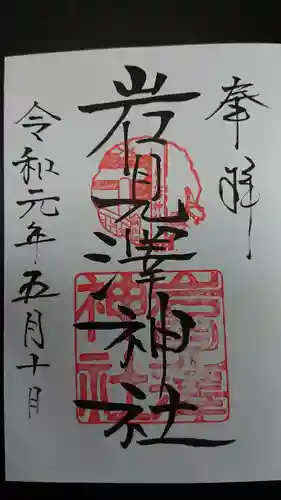 奉拝
岩見澤神社
岩見澤神社
令和元年五月十日